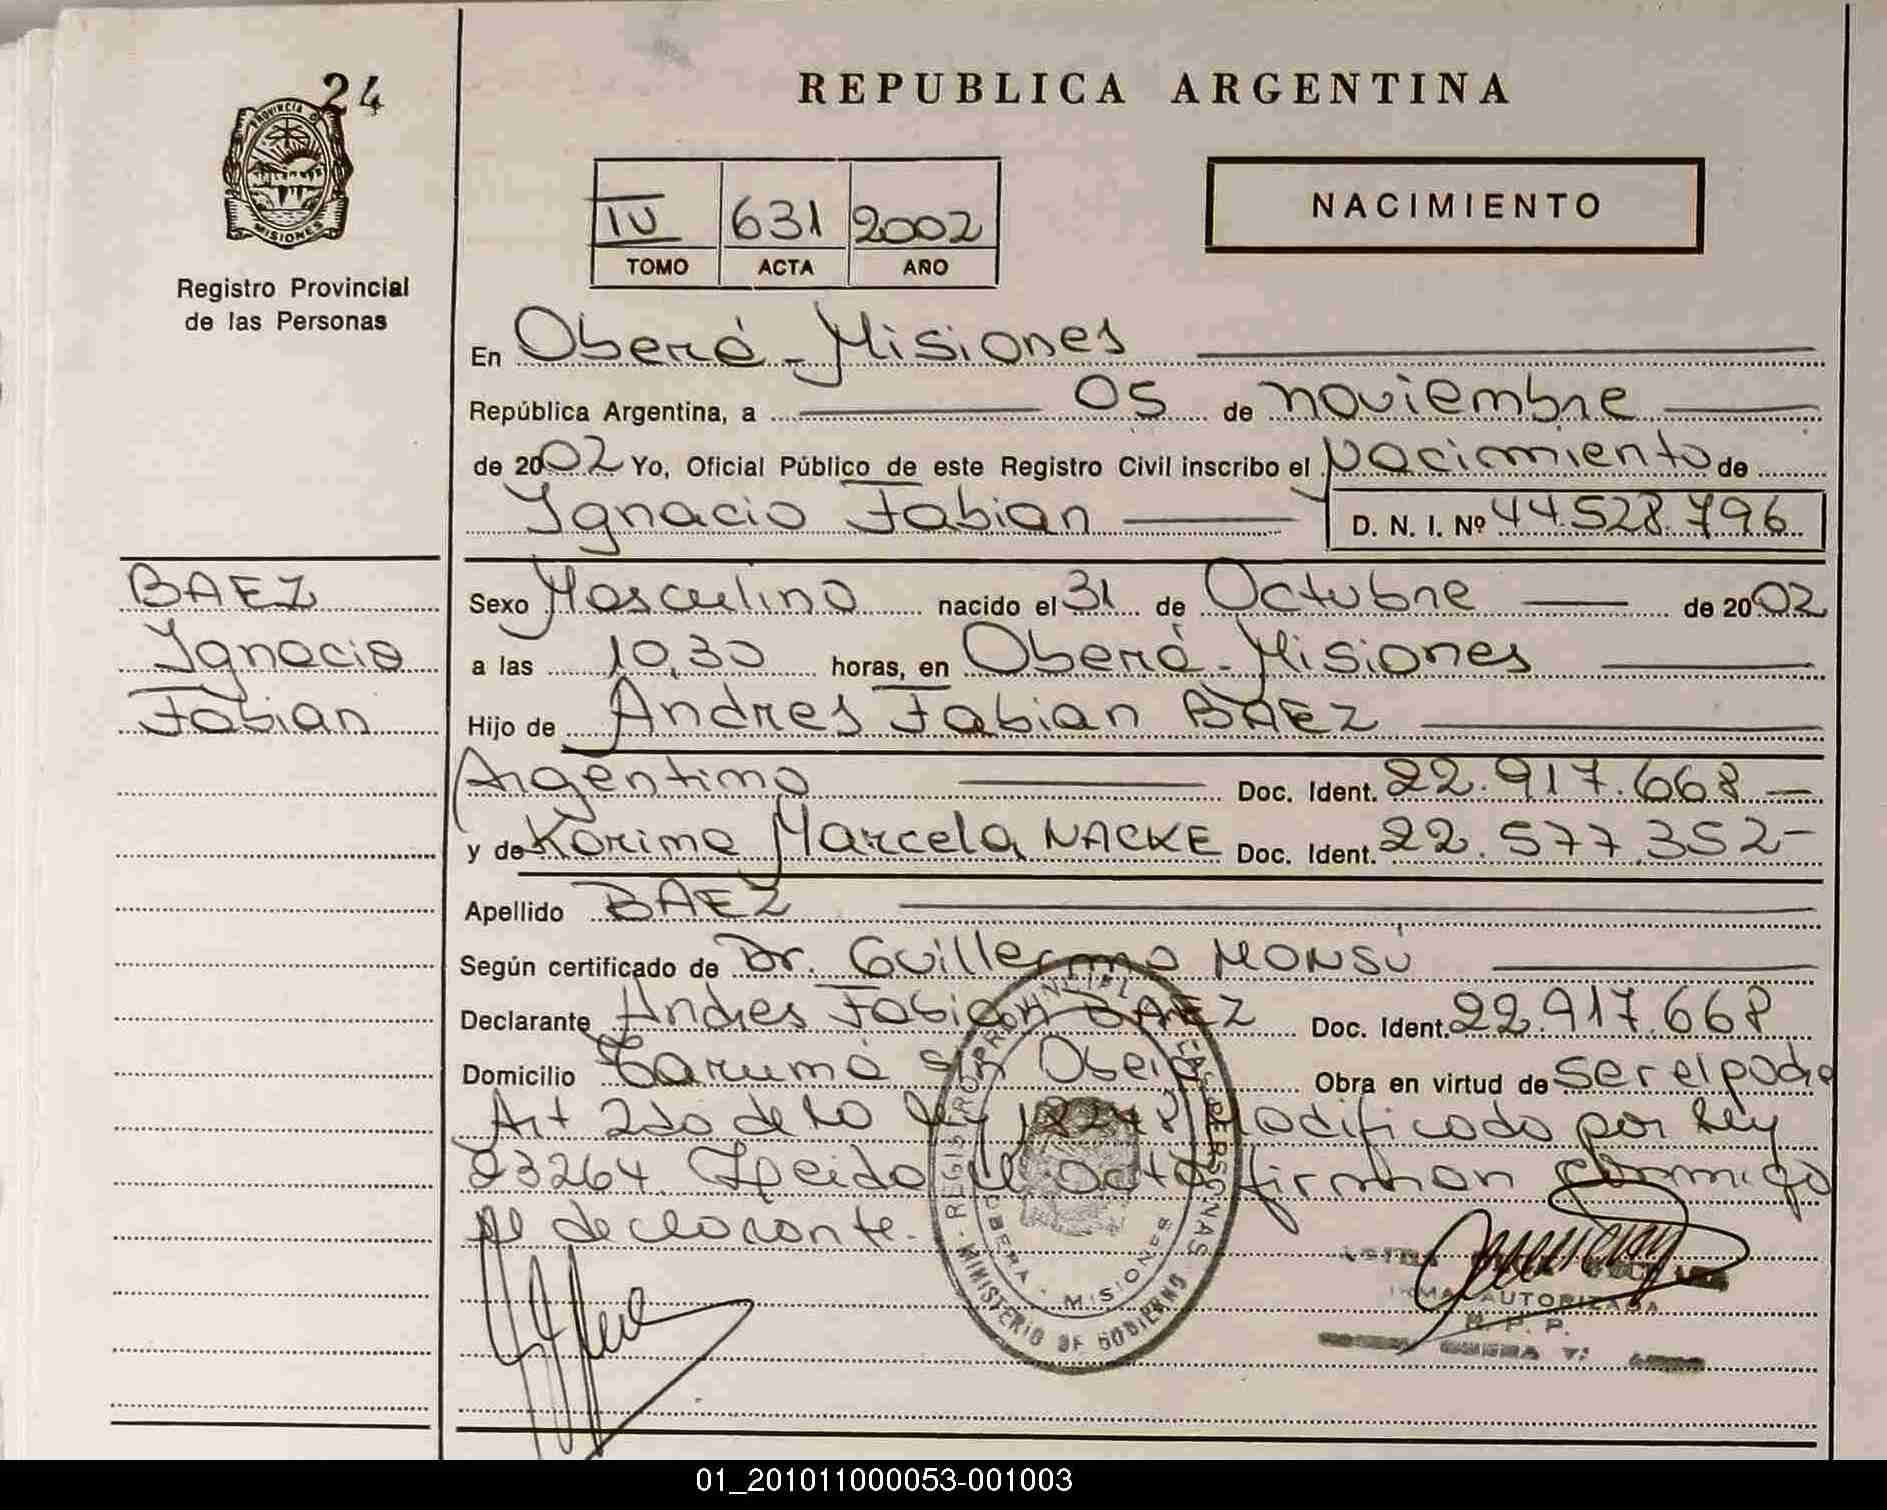 24
PROVINCIA D
MISIONES
Registro Provincial
de las Personas
REPUBLICA ARGENTINA
IV 631 2002
TOMO ACTA AÑO
NACIMIENTO
En Oberá - Misiones
República Argentina, a 05 de noviembre
de 2002 Yo, Oficial Público de este Registro Civil inscribo el Nacimiento de
Ignacio Fabian D. N. I. Nº 44.528.796
BAEZ
Ignacio
Fabian
Sexo Masculino nacido el 31 de Octubre de 2002
a las 10,30 horas, en Oberá - Misiones
Hijo de Andres Fabian BAEZ
Argentino Doc. Ident. 22.917.668 -
y de Karina Marcela NACKE Doc. Ident. 22.577.352 -
Apellido BAEZ
Según certificado de Dr. Guillermo MONSU
Declarante Andres Fabian BAEZ Doc. Ident. 22.917.668
Domicilio Tarumá s/n Oberá Obra en virtud de ser el padre
Art 2do de la ley 18248 Modificado por Ley
23264. Leida el acta firman conmigo
el declarante.
REGISTRO PROVINCIAL DE LAS PERSONAS
OBERA - MISIONES
MINISTERIO DE GOBIERNO
FIRMA AUTORIZADA
R. P. P.
01_201011000053-001003